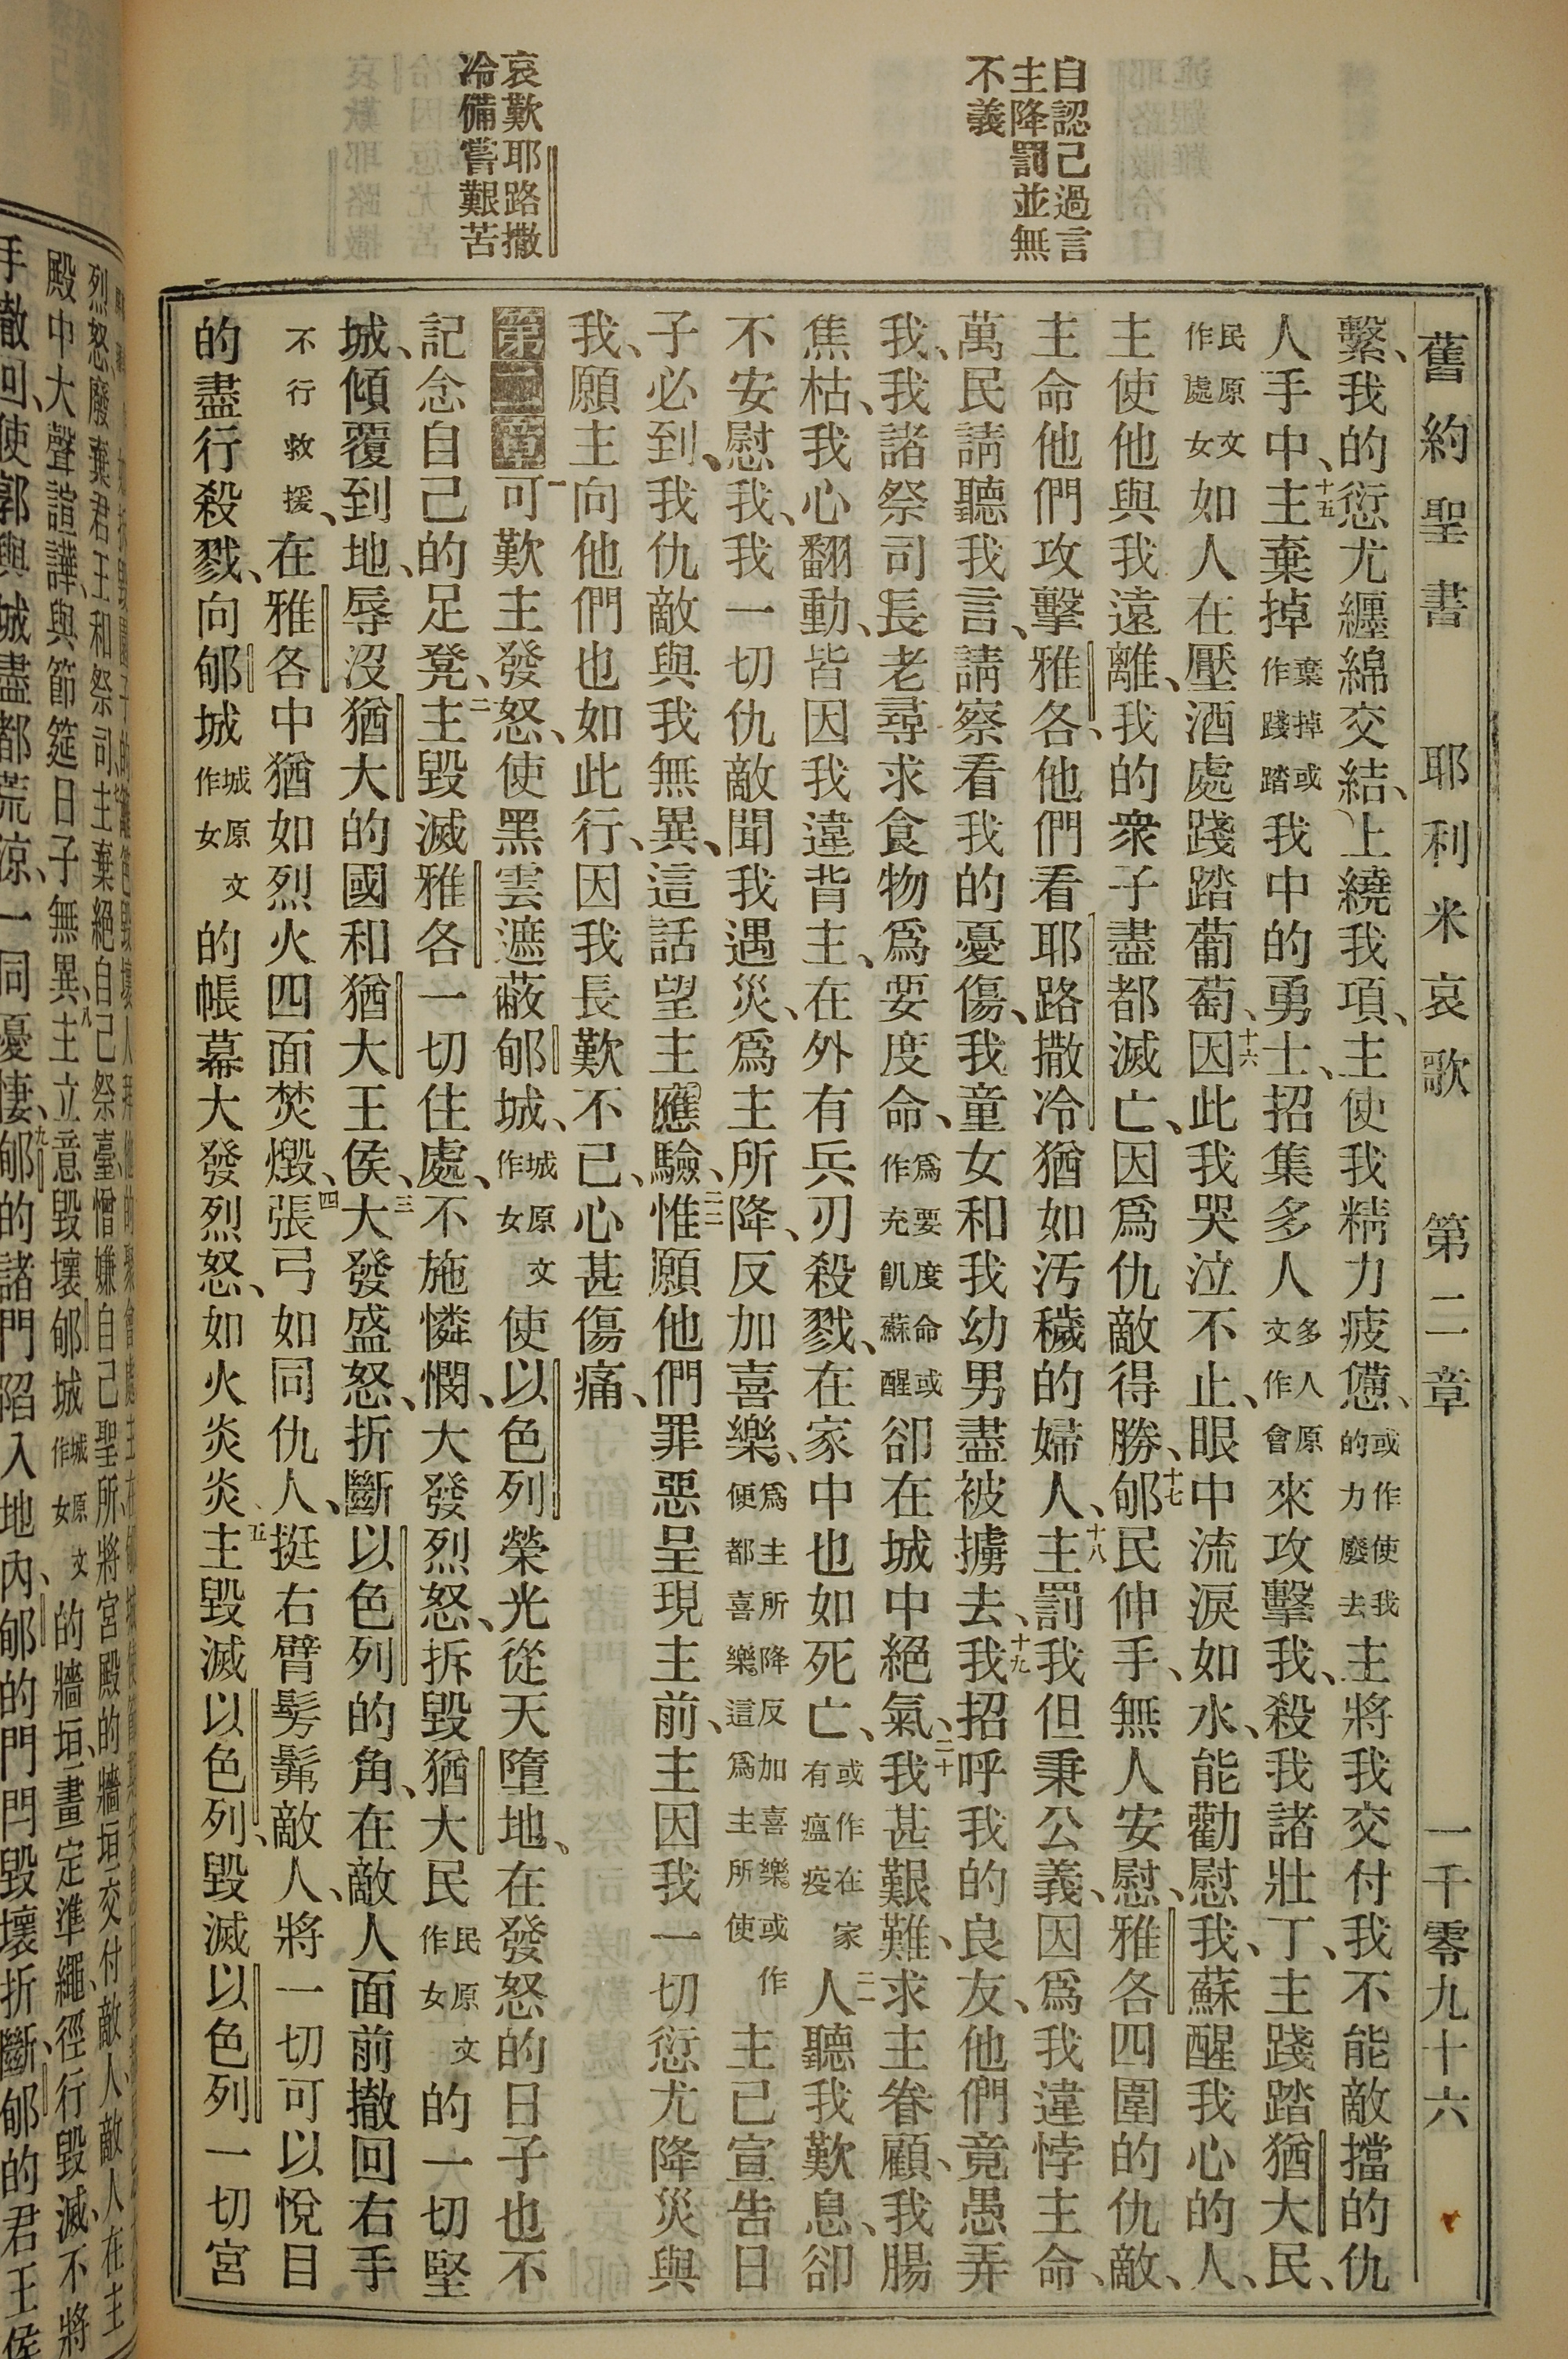 舊約聖書 耶利米哀歌 第二章 一千零九十六
自認己過言
主降罰並無
不義
哀歎耶路撒
冷備嘗艱苦
繫、我的愆尤纏綿交結、上繞我項、主使我精力疲憊、或作使我的力廢去主將我交付我不能敵擋的仇
人手中、十五主棄掉棄掉或作踐踏我中的勇士、招集多人多人原文作會來攻擊我、殺我諸壯丁、主踐踏猶大民、
民原文作處女如人在壓酒處踐踏葡萄、十六因此我哭泣不止、眼中流淚如水、能勸慰我、蘇醒我心的人、
主使他與我遠離、我的衆子盡都滅亡、因爲仇敵得勝、十七郇民伸手、無人安慰、雅各四圍的仇敵、
主命他們攻擊雅各、他們看耶路撒冷猶如汚穢的婦人、十八主罰我但秉公義、因爲我違悖主命、
萬民請聽我言、請察看我的憂傷、我童女和我幼男盡被擄去、十九我招呼我的良友、他們竟愚弄
我、我諸祭司長老尋求食物爲要度命、爲要度命或作充飢蘇醒卻在城中絕氣、二十我甚艱難、求主眷顧、我腸
焦枯、我心翻動、皆因我違背主、在外有兵刃殺戮、在家中也如死亡、或作在家有瘟疫二一人聽我歎息、卻
不安慰我、我一切仇敵聞我遇災、爲主所降、反加喜樂、爲主所降反加喜樂或作便都喜樂這爲主所使主已宣告日
子必到、我仇敵與我無異、這話望主應驗、二二惟願他們罪惡呈現主前、主因我一切愆尤降災與
我、願主向他們也如此行、因我長歎不已、心甚傷痛、
第二章一可歎主發怒、使黑雲遮蔽郇城、城原文作女使以色列榮光從天墮地、在發怒的日子也不
記念自己的足凳、二主毀滅雅各一切住處、不施憐憫、大發烈怒、拆毀猶大民民原文作女的一切堅
城、傾覆到地、辱沒猶大的國和猶大王侯、三大發盛怒、折斷以色列的角、在敵人面前撤回右手
不行救援、在雅各中猶如烈火四面焚燬、四張弓如同仇人、挺右臂髣髴敵人、將一切可以悅目
的盡行殺戮、向郇城城原文作女的帳幕大發烈怒、如火炎炎、五主毀滅以色列、毀滅以色列一切宮
烈怒、廢棄君王和祭司、主棄絕自己祭臺、憎嫌自己聖所、將宮殿的牆垣交付敵人、敵人在主
殿中大聲諠譁、與節筵日子無異、八主立意毀壞郇城城原文作女的牆垣、畫定準繩、徑行毀滅、不將
手撤回、使郭與城盡都荒涼、一同憂悽、九郇的諸門陷入地內、郇的門閂毀壞折斷、郇的君王侯